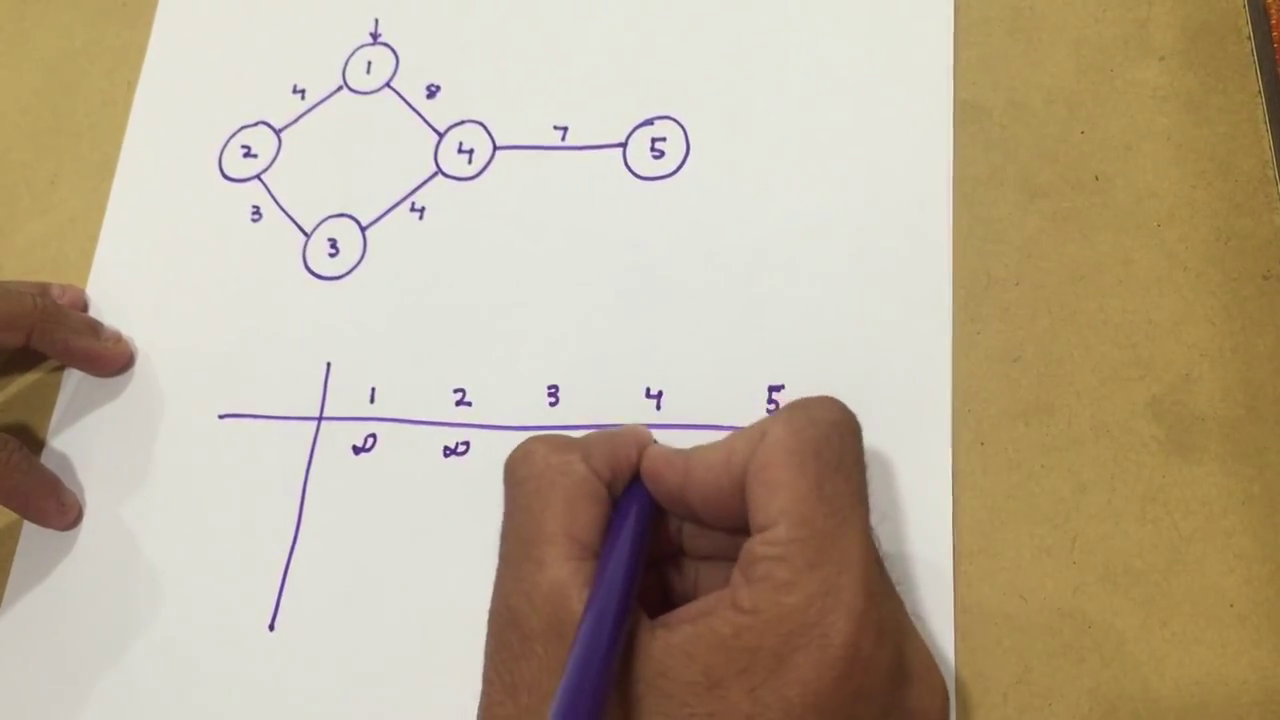 1
4 8
2 4 7 5
3 4
3
1 2 3 4 5
∞ ∞